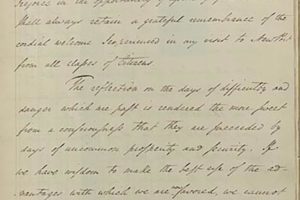 rejoice in the opportunity of
shall always retain a grateful remembrance of the
cordial welcome I experienced in my visit to New Port
from all classes of Citizens.
The reflection on the days of difficulty and
danger which are past is rendered the more sweet
from a consciousness that they are succeeded by
days of uncommon prosperity and security. If
we have wisdom to make the best use of the ad-
vantages with which we are now favored, we cannot